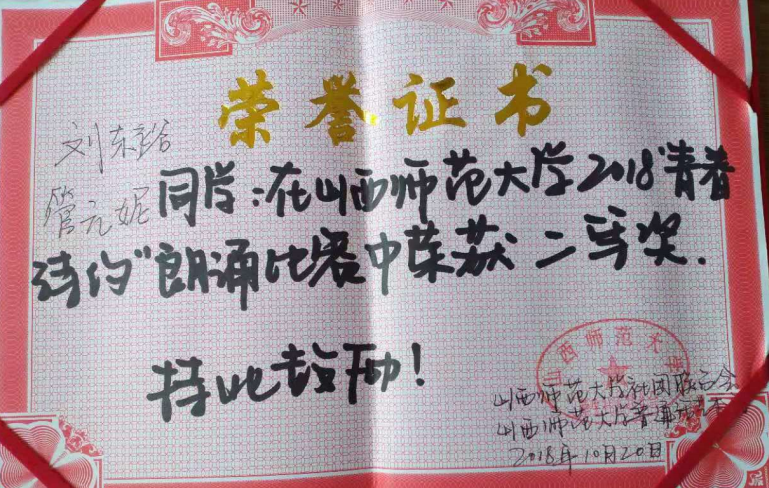 荣誉证书
刘东
管元妮
同学:在山西师范大学2018"青春
诗约"朗诵比赛中荣获二等奖.
特此鼓励!
山西师范大
山西师范大学社团联合会
山西师范大学普通话
2018年10月20日